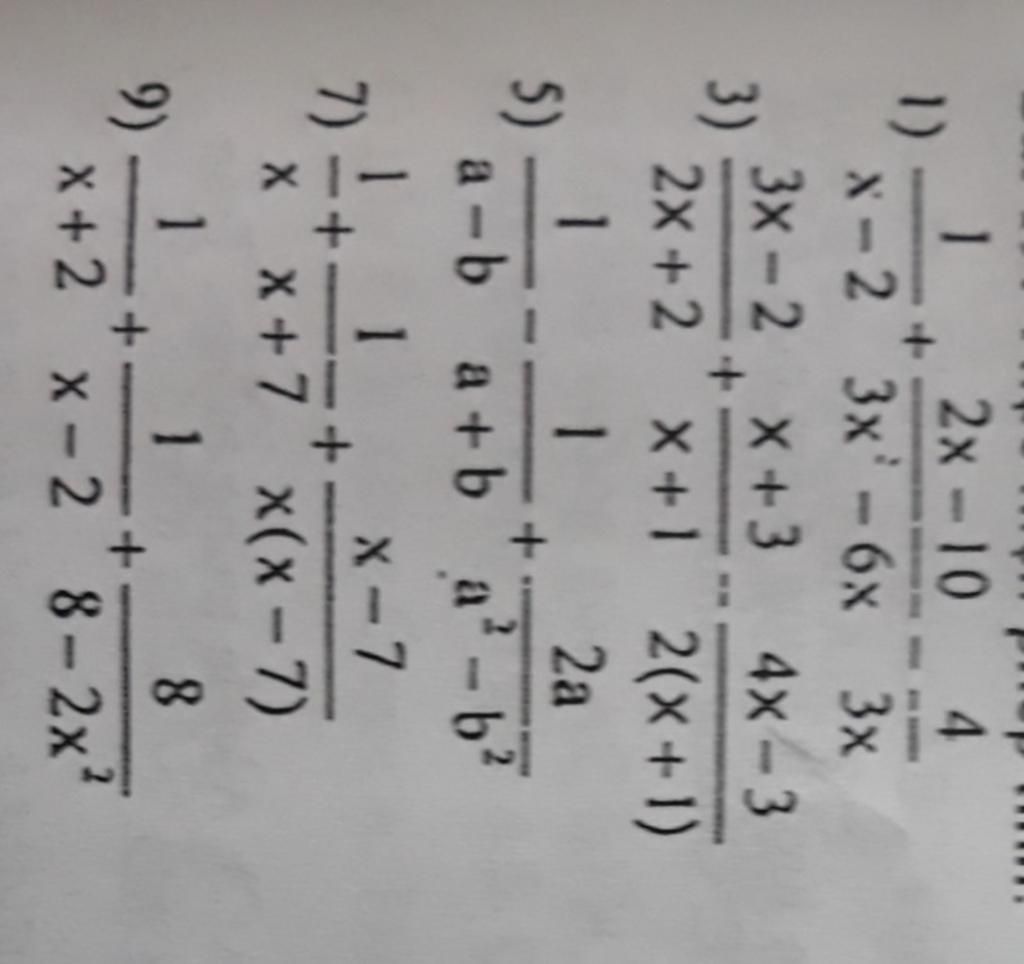 1) 1/(x − 2) + (2x − 10)/(3x² − 6x) − 4/(3x)
3) (3x − 2)/(2x + 2) + (x + 3)/(x + 1) − (4x − 3)/(2(x + 1))
5) 1/(a − b) − 1/(a + b) + 2a/(a² − b²)
7) 1/x + 1/(x + 7) + (x − 7)/(x(x − 7))
9) 1/(x + 2) + 1/(x − 2) + 8/(8 − 2x²)